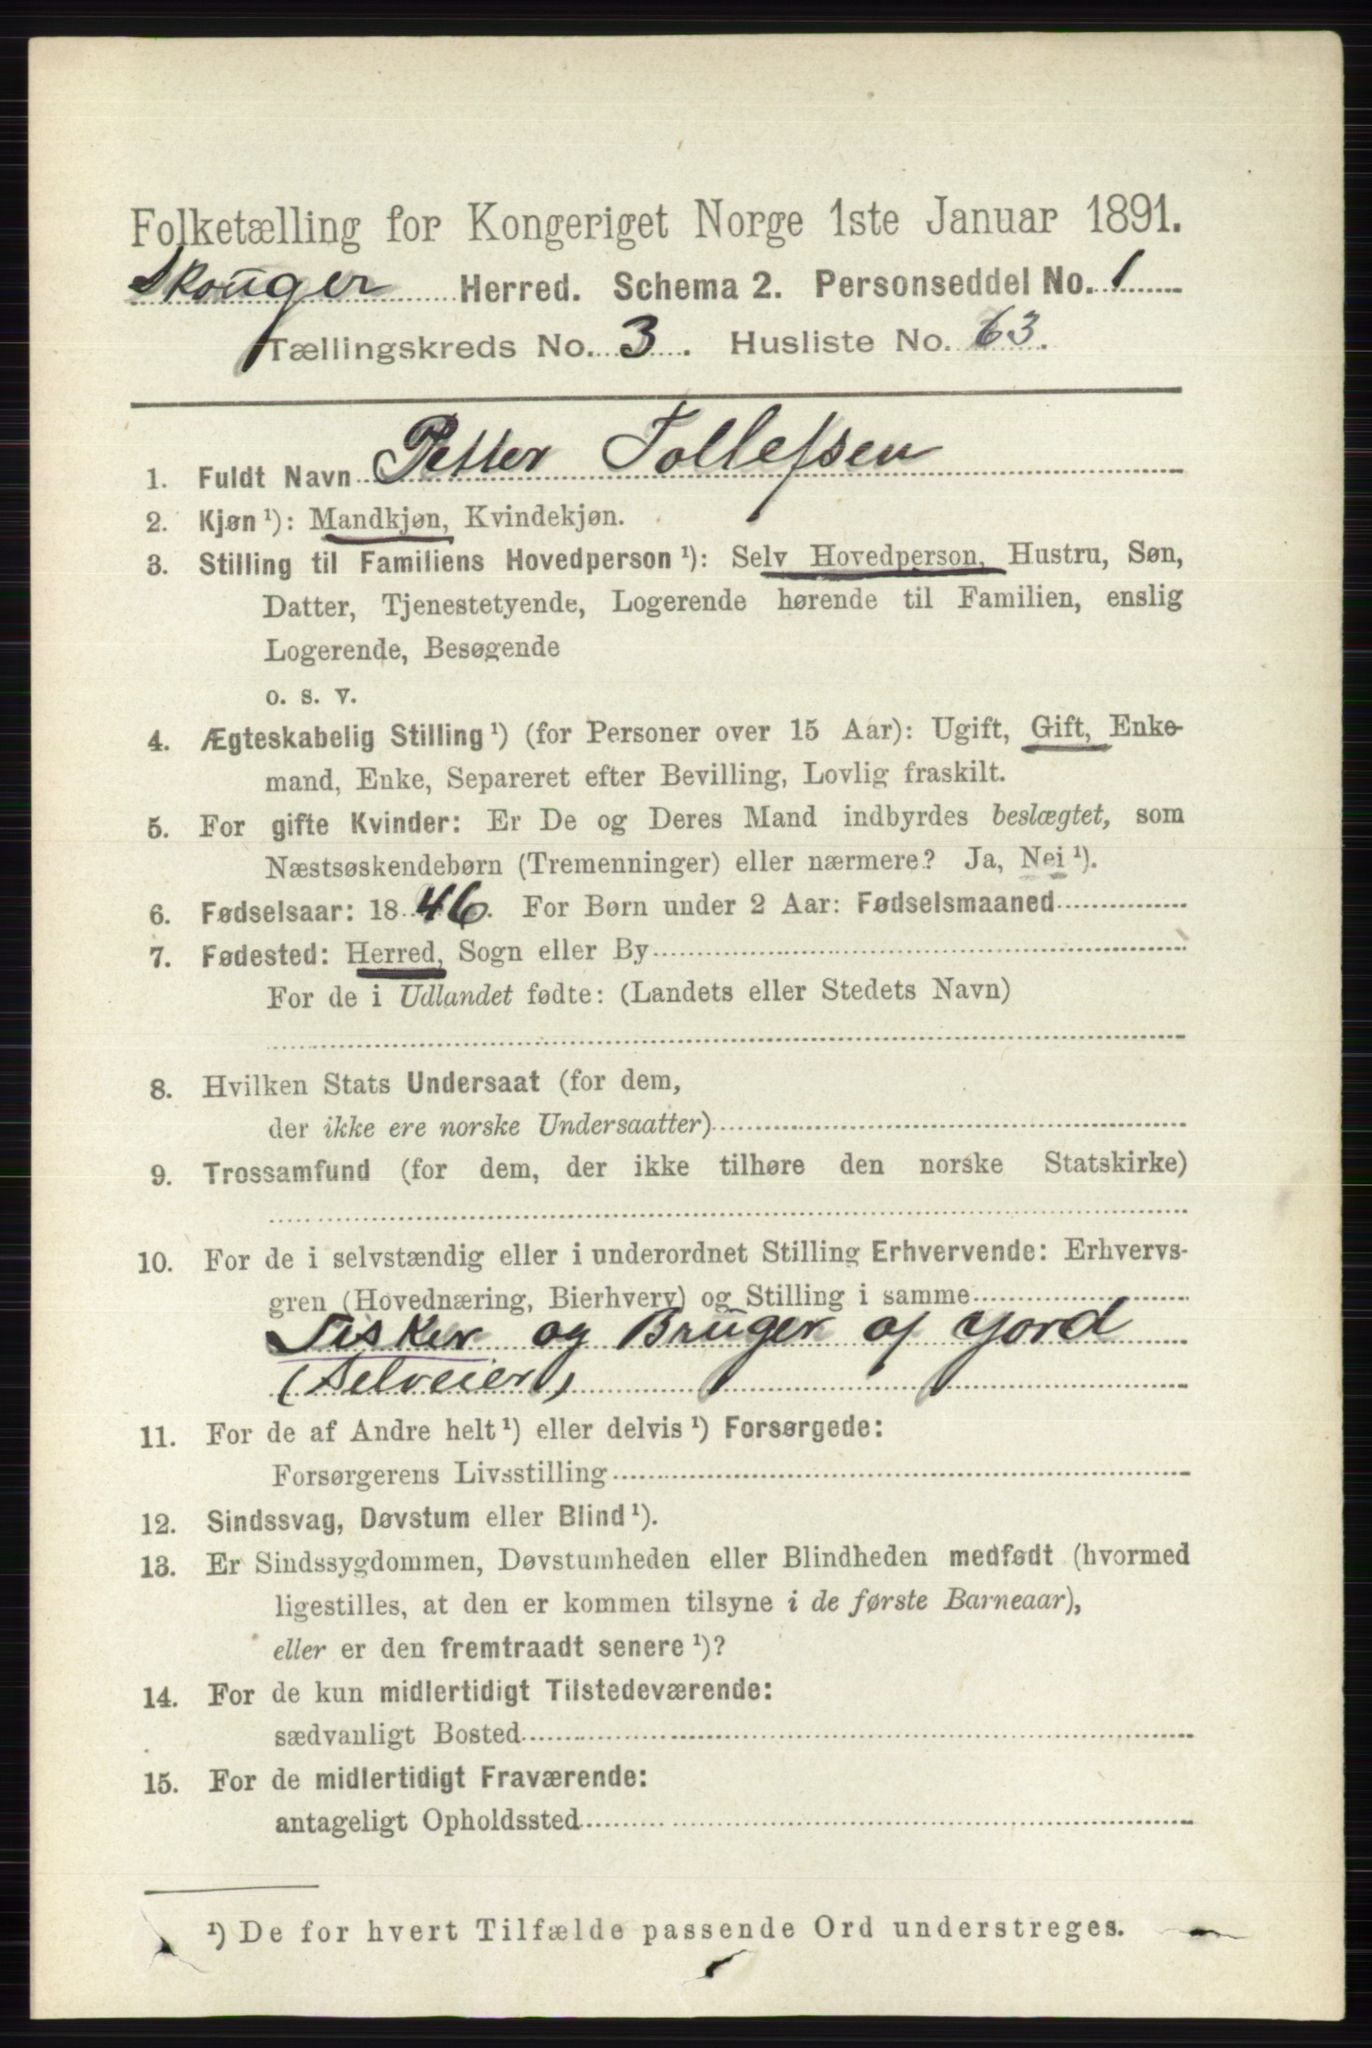 Folketælling for Kongeriget Norge 1ste Januar 1891.
Skouger Herred. Schema 2. Personseddel No. 1
Tællingskreds No. 3. Husliste No. 63.
1. Fuldt Navn Petter Tollefsen
2. Kjøn ¹): Mandkjøn, Kvindekjøn.
3. Stilling til Familiens Hovedperson ¹): Selv Hovedperson, Hustru, Søn,
Datter, Tjenestetyende, Logerende hørende til Familien, enslig
Logerende, Besøgende
o. s. v.
4. Ægteskabelig Stilling ¹) (for Personer over 15 Aar): Ugift, Gift, Enke-
mand, Enke, Separeret efter Bevilling, Lovlig fraskilt.
5. For gifte Kvinder: Er De og Deres Mand indbyrdes beslægtet, som
Næstsøskendebørn (Tremenninger) eller nærmere? Ja, Nei ¹).
6. Fødselsaar: 1846. For Børn under 2 Aar: Fødselsmaaned
7. Fødested: Herred, Sogn eller By
For de i Udlandet fødte: (Landets eller Stedets Navn)
8. Hvilken Stats Undersaat (for dem,
der ikke ere norske Undersaatter)
9. Trossamfund (for dem, der ikke tilhøre den norske Statskirke)
10. For de i selvstændig eller i underordnet Stilling Erhvervende: Erhvervs-
gren (Hovednæring, Bierhverv) og Stilling i samme
Fisker og Bruger af Jord
(Selveier)
11. For de af Andre helt ¹) eller delvis ¹) Forsørgede:
Forsørgerens Livsstilling
12. Sindssvag, Døvstum eller Blind ¹).
13. Er Sindssygdommen, Døvstumheden eller Blindheden medfødt (hvormed
ligestilles, at den er kommen tilsyne i de første Barneaar),
eller er den fremtraadt senere ¹)?
14. For de kun midlertidigt Tilstedeværende:
sædvanligt Bosted
15. For de midlertidigt Fraværende:
antageligt Opholdssted
¹) De for hvert Tilfælde passende Ord understreges.